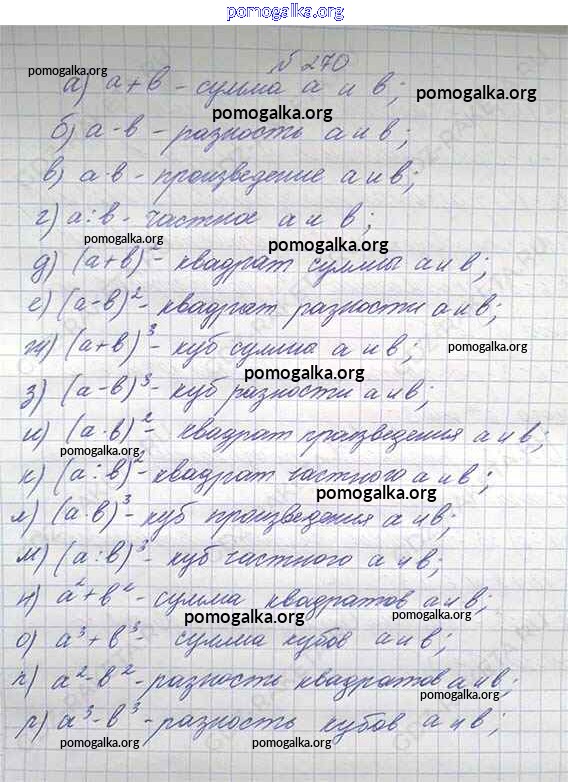 pomogalka.org
№ 270
pomogalka.org
а) a + в - сумма a и в;
pomogalka.org
pomogalka.org
б) a - в - разность a и в;
в) a · в - произведение a и в;
г) a : в - частное a и в;
pomogalka.org
pomogalka.org
д) (a + в)² - квадрат суммы a и в;
е) (a - в)² - квадрат разности a и в;
ж) (a + в)³ - куб сумма a и в;
pomogalka.org
pomogalka.org
з) (a - в)³ - куб разности a и в;
и) (a · в)² - квадрат произведения a и в;
к) (a : в)² - квадрат частного a и в;
pomogalka.org
л) (a · в)³ - куб произведения a и в;
м) (a : в)³ - куб частного a и в;
н) a² + в² - сумма квадратов a и в;
pomogalka.org
pomogalka.org
о) a³ + в³ - сумма кубов a и в;
п) a² - в² - разности квадратов a и в;
pomogalka.org
р) a³ - в³ - разность кубов a и в;
pomogalka.org
pomogalka.org
pomogalka.org